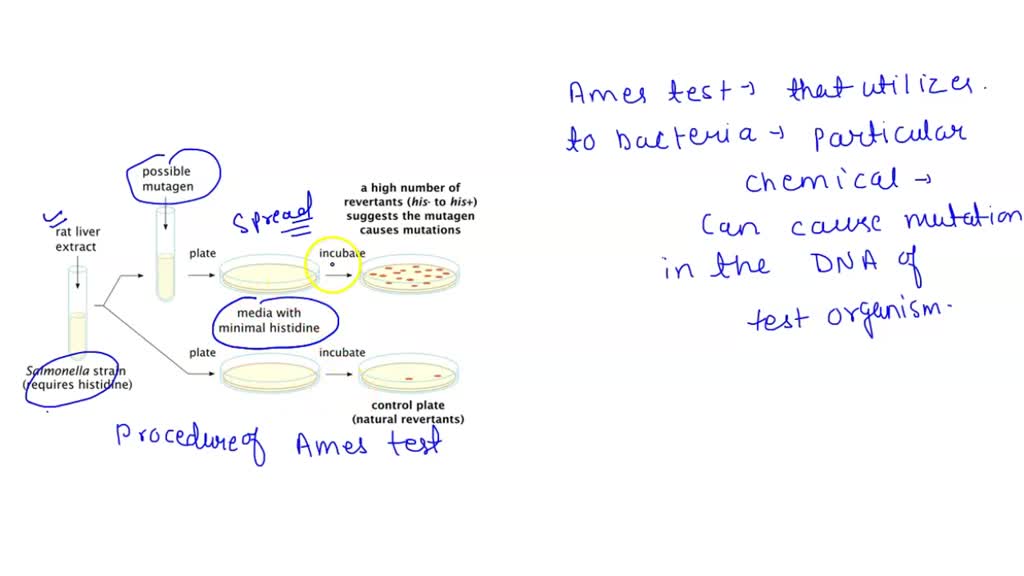 possible
mutagen
rat liver
extract
spread
a high number of
revertants (his- to his+)
suggests the mutagen
causes mutations
plate
incubate
media with
minimal histidine
plate
incubate
Salmonella strain
(requires histidine)
control plate
(natural revertants)
Procedure of Ames test
Ames test → that utilizes.
to bacteria → particular
chemical →
can cause mutation
in the DNA of
test organism.